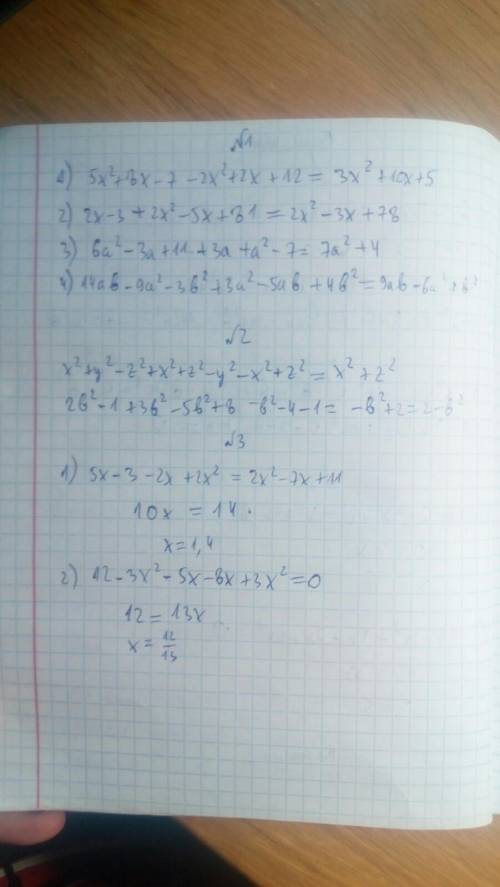 №1
1) 5x²+8x-7-2x²+2x+12=3x²+10x+5
2) 2x-3+2x²-5x+81=2x²-3x+78
3) 6a²-3a+11+3a+a²-7=7a²+4
4) 14ab-9a²-3b²+3a²-5ab+4b²=9ab-6a²+b²
№2
x²+y²-z²+x²+z²-y²-x²+z²=x²+z²
2b²-1+3b²-5b²+8-b²-4-1=-b²+2=2-b²
№3
1) 5x-3-2x+2x²=2x²-7x+11
10x=14.
x=1,4
2) 12-3x²-5x-8x+3x²=0
12=13x
x=12/13